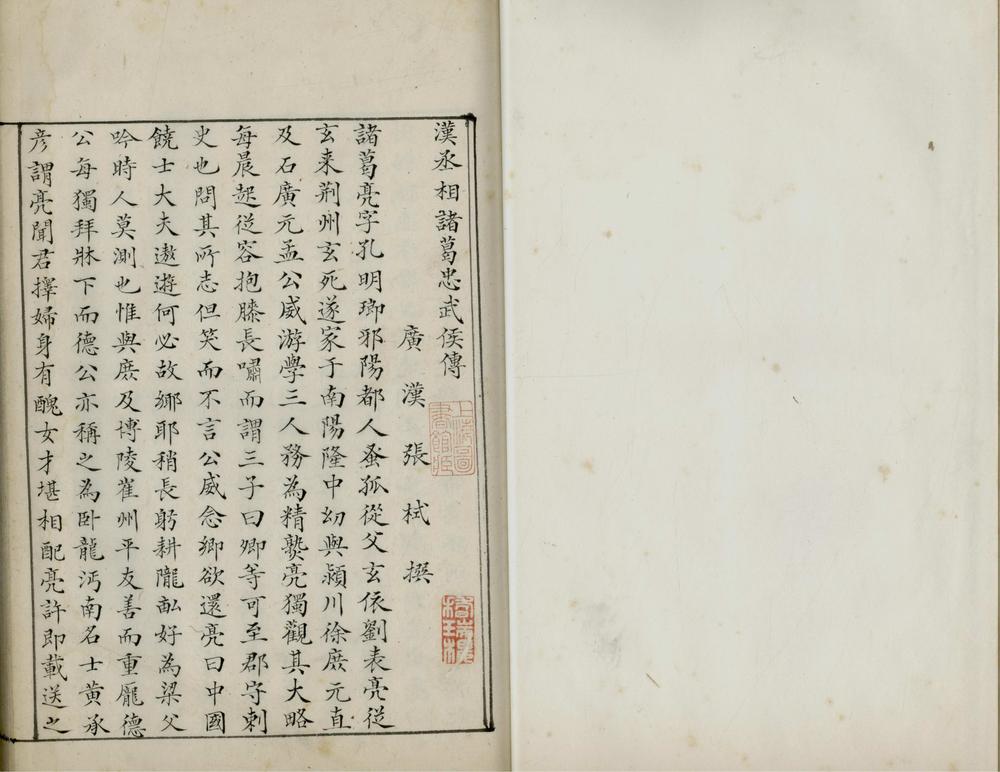 漢丞相諸葛忠武侯傳
廣漢張栻撰
上海圖書館藏
諸葛亮字孔明瑯邪陽都人蚤孤從父玄依劉表亮從
玄来荆州玄死遂家于南陽隆中㓜與潁川徐庶元直
及石廣元孟公威游學三人務為精𤍠亮獨觀其大略
每晨起從容抱膝長嘯而謂三子曰卿等可至郡守刺
史也問其所志但笑而不言公威念鄉欲還亮曰中國
饒士大夫遨遊何必故鄉耶稍長躬耕隴畝好為梁父
吟時人莫測也惟與庶及博陵崔州平友善而重龐德
公每獨拜牀下而德公亦稱之為卧龍沔南名士黄承
彦謂亮聞君擇婦身有醜女才堪相配亮許即載送之